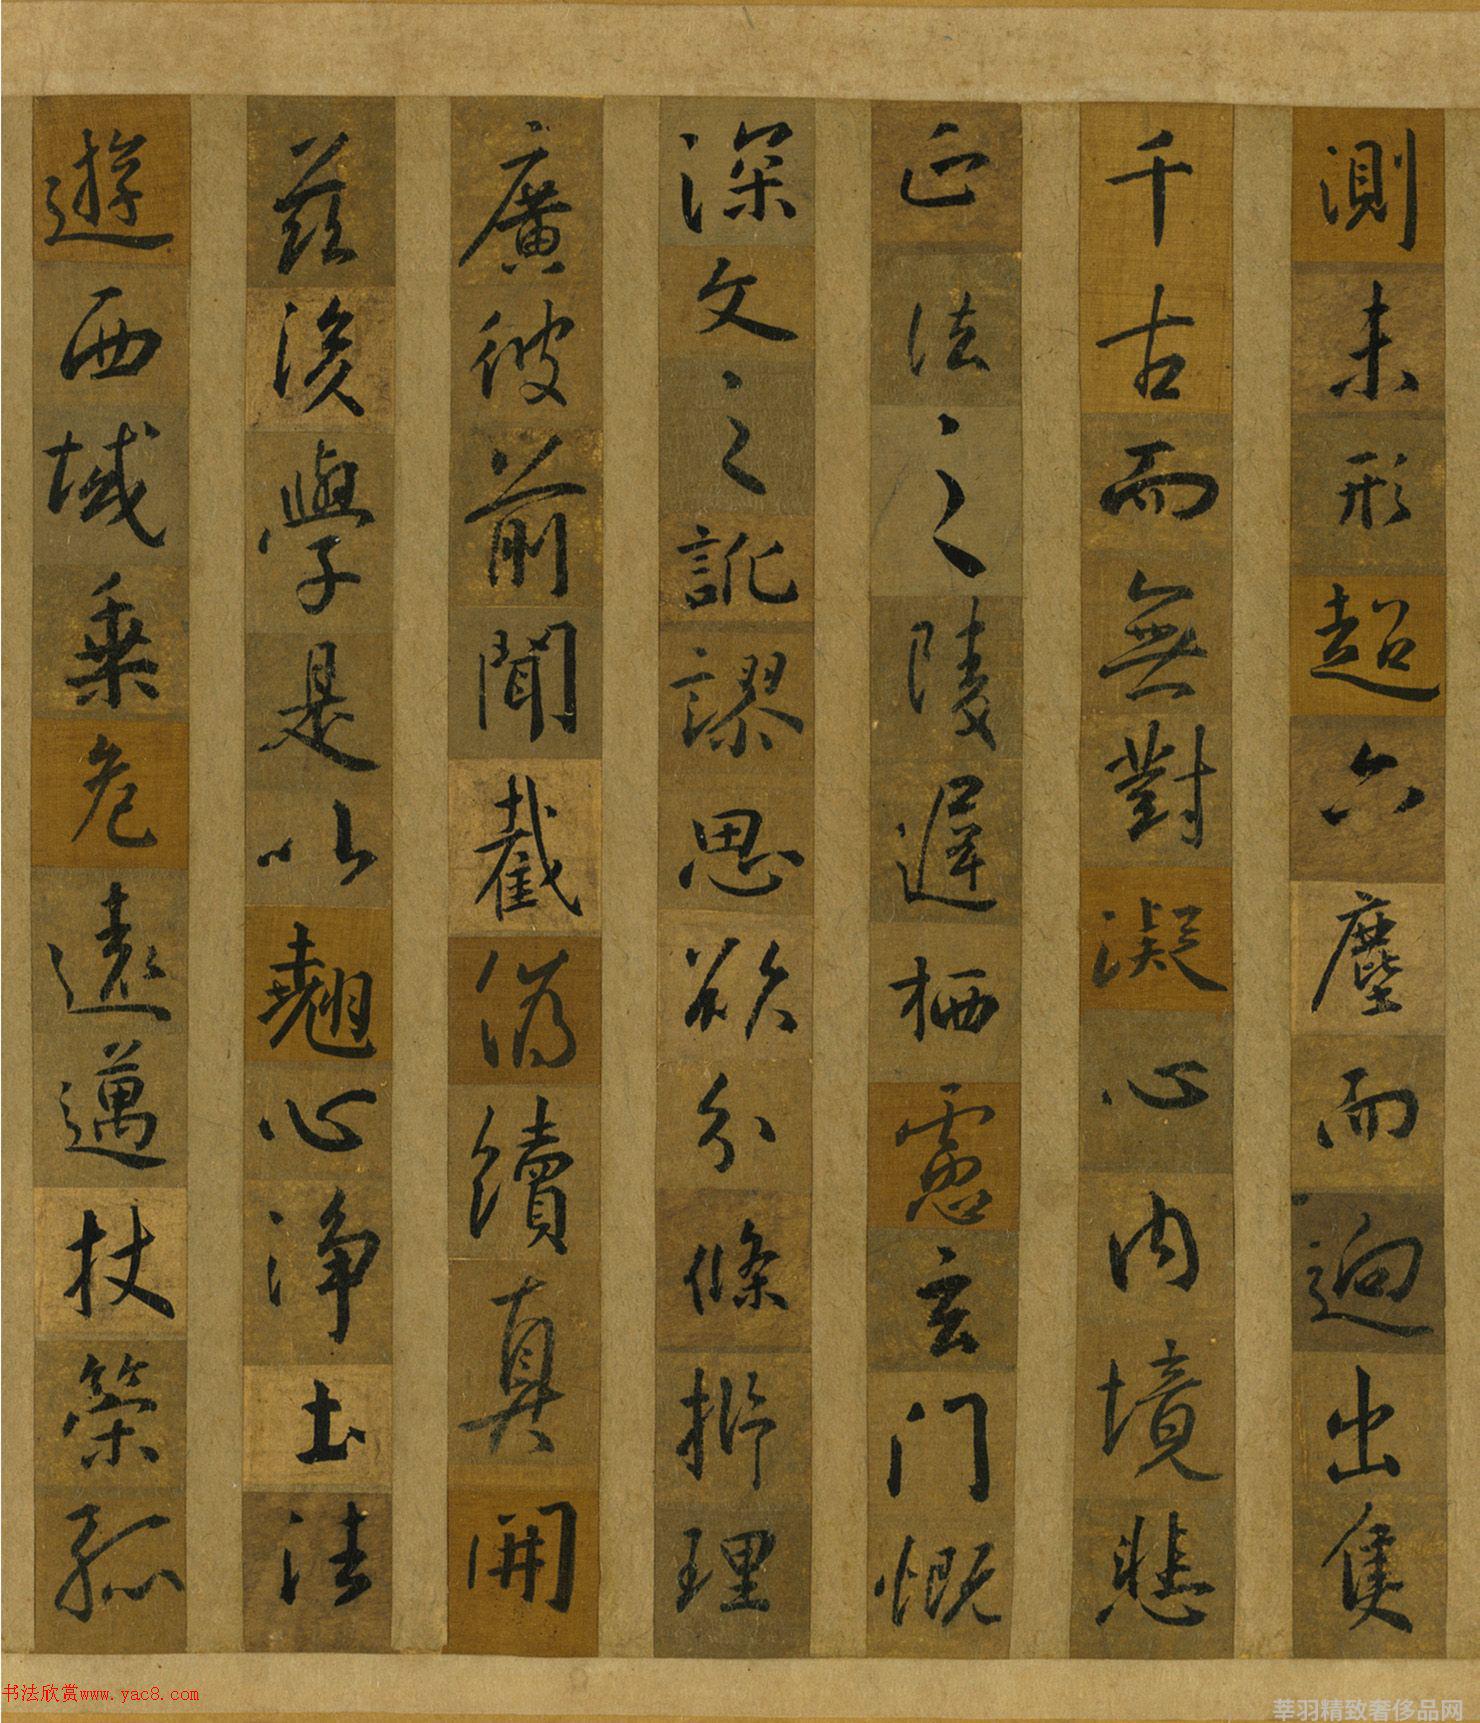 測未形超六塵而迥出隻
千古而無對凝心內境悲
正法之陵遲栖慮玄門慨
深文之訛謬思欲分條析理
廣彼前聞截偽續真開
茲後學是以翹心淨土法
遊西域乗危遠邁杖策孤
书法欣赏www.yac8.com
莘羽精致奢侈品网